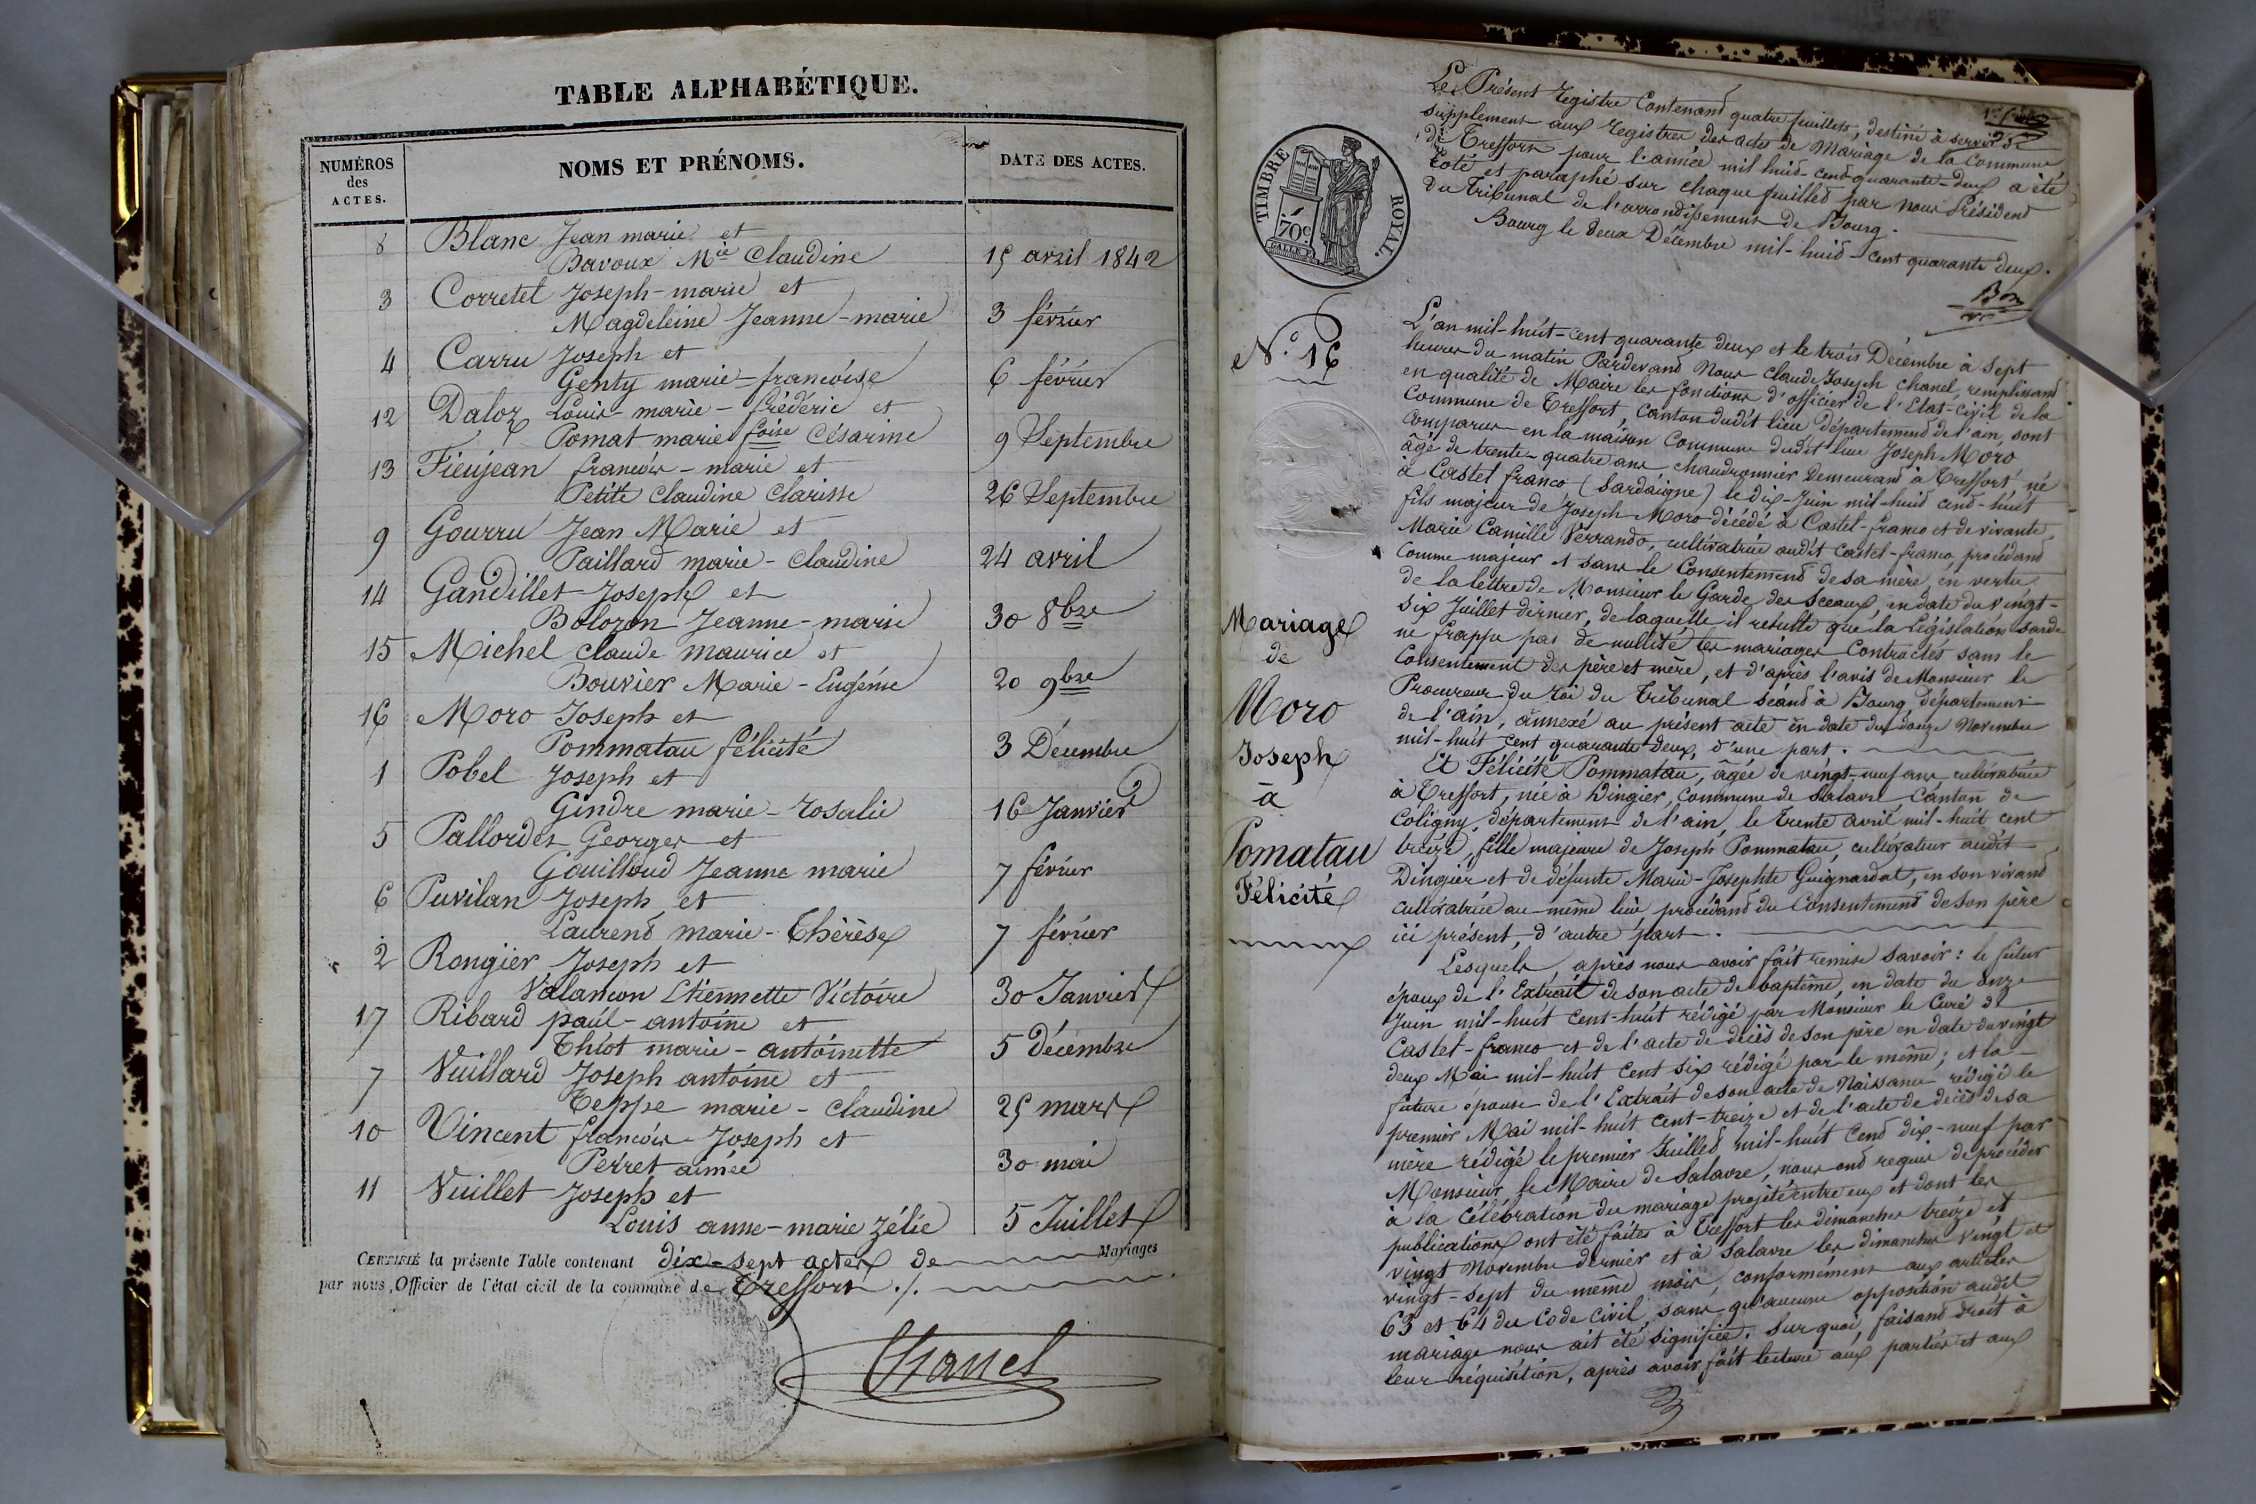 TABLE ALPHABÉTIQUE.
NUMÉROS
des
ACTES.
NOMS ET PRÉNOMS.
DATE DES ACTES.
8 Blanc Jean marie et
Bavoux Mie Claudine 15 avril 1842
3 Corretel Joseph-marie et
Magdeleine Jeanne-marie 3 février
4 Carru Joseph et
Genty marie-françoise 6 février
12 Daloz Louis-marie-frédéric et
Pomat marie foise Césarine 9 Septembre
13 Fieujean françois-marie et
Petite Claudine Clarisse 26 Septembre
9 Gourru Jean Marie et
Paillard marie-Claudine 24 avril
14 Gandillet Joseph et
Bolozon Jeanne-marie 30 8bre
15 Michel Claude maurice et
Bouvier Marie-Eugénie 20 9bre
16 Moro Joseph et
Pommatau félicité 3 Décembre
1 Pobel Joseph et
Gindre marie-rosalie 16 Janvier
5 Pallordet Georges et
Gouilloud Jeanne marie 7 février
6 Puvilan Joseph et
Laurend marie-Thérèse 7 février
2 Rongier Joseph et
Valançon Etiennette Victoire 30 Janvier
17 Ribard paul-antoine et
Thlot marie-antoinette 5 Décembre
7 Vuillard Joseph antoine et
Teppe marie-Claudine 25 mars
10 Vincent françois-Joseph et
Perret aimée 30 mai
11 Vuillet Joseph et
Louis anne-marie zélie 5 Juillet
CERTIFIÉ la présente Table contenant dix-sept actes de Mariages
par nous, Officier de l'état civil de la commune de Treffort ./.
Chanel
1er
Le Présent registre Contenant quatre feuillets, destiné à servir de
supplement aux registres des actes de Mariage de la Commune
de Treffort pour l'année mil huit-cent quarante-deux a été
Coté et paraphé sur chaque feuillet par nous Président
du Tribunal de l'arrondissement de Bourg.
Bourg le deux Décembre mil-huit-cent quarante deux.
Bon
TIMBRE ROYAL.
70c
GALLE
No. 16
Mariage
de
Moro
Joseph
à
Pomatau
Félicité
L'an mil-huit-cent quarante deux et le trois Décembre à sept
heures du matin Pardevand Nous Claude Joseph Chanel, remplissant
en qualité de Maire les fonctions d'officier de l'Etat-Civil de la
Commune de Treffort, Canton dudit lieu département de l'ain, sont
Comparus en la maison Commune dudit lieu Joseph Moro
âgé de trente-quatre ans chaudronnier Demeurand à Treffort né
à Castel franco (Sardaigne) le dix-Juin mil-huit cent-huit
fils majeur de Joseph Moro décédé à Castel-franco et de vivante,
Marie Camille Verrando, cultivatrice audit Castel-franco, procédand
Comme majeur et sans le Consentement de sa mère, en vertu
de la lettre de Monsieur le Garde des Sceaux, en date du vingt-
six Juillet dernier, de laquelle il resulte que la Législation sarde
ne frappe pas de nullité les mariages Contractés sans le
Consentement des père et mère, et d'après l'avis de Monsieur le
Procureur du roi du Tribunal séand à Bourg, département
de l'ain, annexé au présent acte en date du douze Novembre
mil-huit cent quarante deux, d'une part.
Et Félicité Pommatau, âgée de vingt-neuf ans cultivatrice
à Treffort, née à Dingier, Commune de Salavre Canton de
Coligny, département de l'ain, le trente avril mil-huit cent
treize, fille majeure de Joseph Pommatau, cultivateur audit
Dingier et de défunte Marie-Josephte Guignardat, en son vivand
cultivatrice au même lieu, procédand du Consentement de son père
ici présent, d'autre part.
Lesquels, après nous avoir fait remise savoir: le futur
époux de l'Extrait de son acte de baptême, en date du onze
Juin mil-huit cent-huit rédigé par Monsieur le Curé de
Castel-franco et de l'acte de décès de son père en date du vingt
deux Mai mil-huit cent six rédigé par le même; et la
future épouse de l'Extrait de son acte de Naissance rédigé le
premier Mai mil-huit cent-treize et de l'acte de décès de sa
mère rédigé le premier Juillet mil-huit cent dix-neuf par
Monsieur le Maire de Salavre, nous ont requis de procéder
à la célébration du mariage projeté entre eux et dont les
publications ont été faites à Treffort les dimanches treize et
vingt Novembre dernier et à Salavre les dimanches vingt et
vingt-sept du même mois, conformément aux articles
63 et 64 du Code Civil sans qu'aucune opposition audit
mariage nous ait été signifiée. Sur quoi, faisant droit à
leur réquisition, après avoir fait lecture aux parties et aux